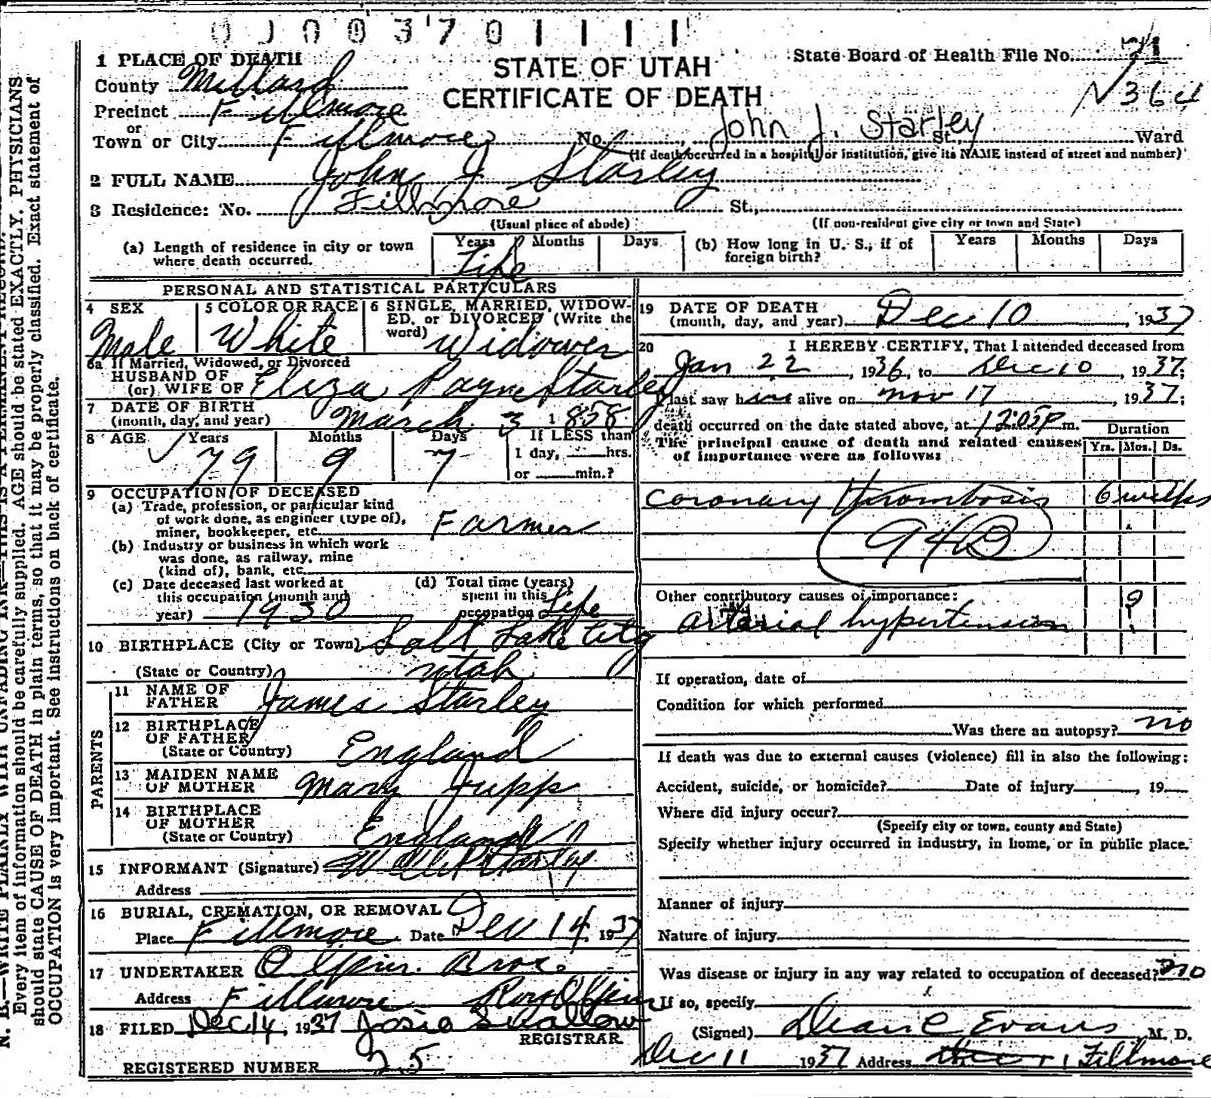 0 J 0 0 3 7 0 1 1 1 1
1 PLACE OF DEATH
State Board of Health File No. 71
County Millard
STATE OF UTAH
N 364
Precinct Fillmore
CERTIFICATE OF DEATH
John J. Starley
Town or City Fillmore No. St., Ward
(If death occurred in a hospital or institution, give its NAME instead of street and number)
2 FULL NAME John J Starley
3 Residence: No. Fillmore St.,
(Usual place of abode) (If non-resident give city or town and State)
(a) Length of residence in city or town where death occurred. Years Months Days Life
(b) How long in U. S., if of foreign birth? Years Months Days
PERSONAL AND STATISTICAL PARTICULARS
4 SEX Male
5 COLOR OR RACE White
6 SINGLE, MARRIED, WIDOW-
ED, or DIVORCED (Write the
word) Widower
6a If Married, Widowed, or Divorced
HUSBAND OF
(or) WIFE OF Eliza Payne Starley
7 DATE OF BIRTH
(month, day, and year) March 3 1858
8 AGE Years Months Days If LESS than
79 9 7 1 day, hrs.
or min.?
9 OCCUPATION OF DECEASED
(a) Trade, profession, or particular kind
of work done, as engineer (type of),
miner, bookkeeper, etc. Farmer
(b) Industry or business in which work
was done, as railway, mine
(kind of), bank, etc.
(c) Date deceased last worked at
this occupation (month and
year) 1930
(d) Total time (years)
spent in this
occupation Life
10 BIRTHPLACE (City or Town) Salt Lake City
(State or Country) Utah
PARENTS
11 NAME OF
FATHER James Starley
12 BIRTHPLACE
OF FATHER
(State or Country) England
13 MAIDEN NAME
OF MOTHER Mary Jupp
14 BIRTHPLACE
OF MOTHER
(State or Country) England
15 INFORMANT (Signature) Starley
Address
16 BURIAL, CREMATION, OR REMOVAL
Place Fillmore Date Dec 14, 1937
17 UNDERTAKER Bros.
Address Fillmore
18 FILED Dec 14, 1937 Josie Swallow
REGISTRAR
REGISTERED NUMBER 25
19 DATE OF DEATH
(month, day, and year) Dec 10, 1937
20 I HEREBY CERTIFY, That I attended deceased from
Jan 22, 1936, to Dec 10, 1937;
last saw him alive on Nov 17, 1937;
death occurred on the date stated above, at 12:05P m.
The principal cause of death and related causes
of importance were as follows:
Duration
Yrs. Mos. Ds.
coronary thrombosis 6 weeks
94B
Other contributory causes of importance:
arterial hypertension ?
If operation, date of
Condition for which performed
Was there an autopsy? no
If death was due to external causes (violence) fill in also the following:
Accident, suicide, or homicide? Date of injury , 19
Where did injury occur?
(Specify city or town, county and State)
Specify whether injury occurred in industry, in home, or in public place.
Manner of injury
Nature of injury
Was disease or injury in any way related to occupation of deceased? no
If so, specify
(Signed) Dean C Evans M. D.
Dec 11 1937 Address Fillmore
N. B.—WRITE PLAINLY WITH UNFADING INK—THIS IS A PERMANENT RECORD.
Every item of information should be carefully supplied. AGE should be stated EXACTLY. PHYSICIANS
should state CAUSE OF DEATH in plain terms, so that it may be properly classified. Exact statement of
OCCUPATION is very important. See instructions on back of certificate.